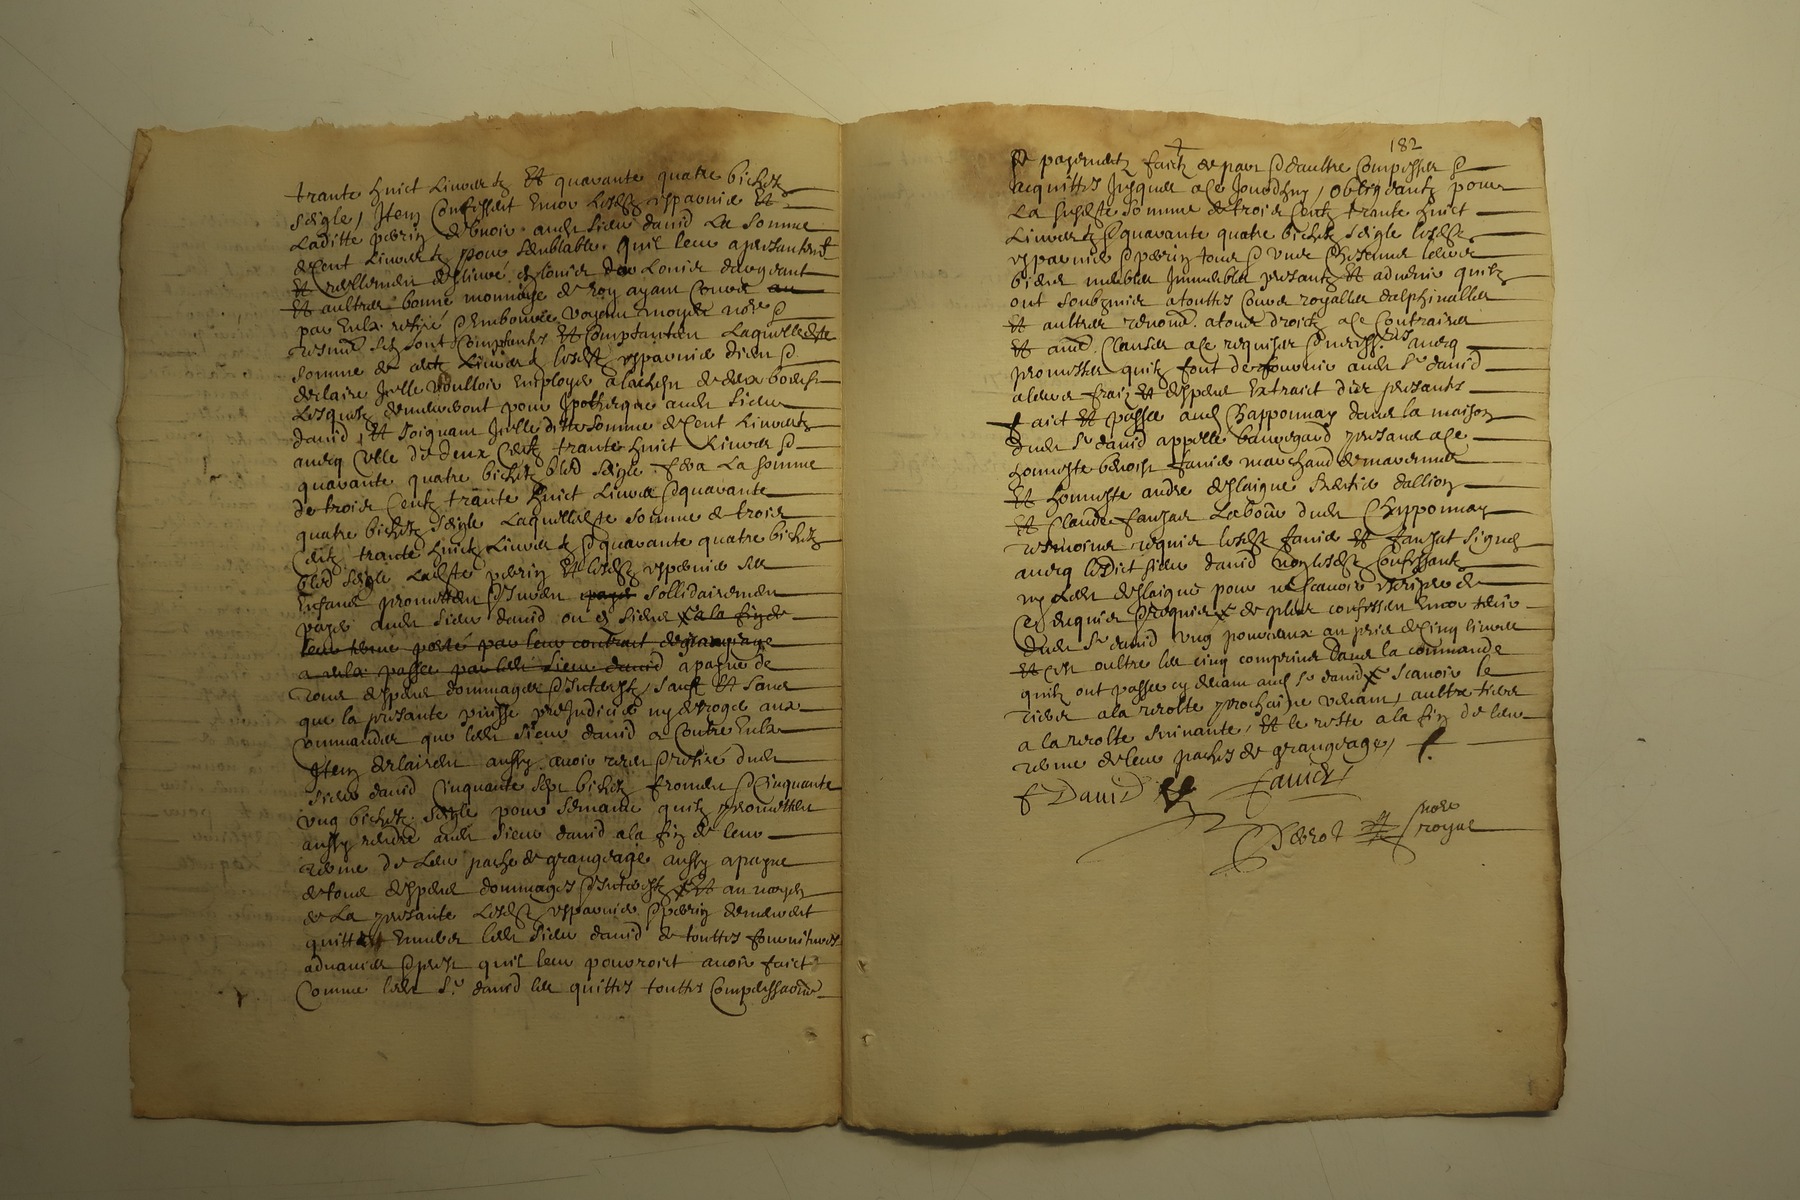 trante huict livres tz Et quarante quatre bichetz
seigle, Item Confessent Encor lesdtz rspaviers Et
Laditte perrin debvoir audt sieur david La somme
de Cent Livres tz pour semblable quil leur a presantemt
Et reellement deslivré en louis dor Louis dargeant
Et aultres bonne monnoye de roy ayant Cours
par Eulx retiré Embourcé voyant moydt nore
tesmns sen sont Comptants Et Comptantent Laquelle dte
somme de cent Livres tz lesdtz rspaviers dient
desclairé Icelle voulloir Employer a lachept de deux boeufz
Lesquelz demeureront pour Ipotheque audt sieur
david, Et Joignant Icelle ditte somme de Cent Livres tz
avecq Celle de deux Centz trante huict Livres
quarante quatre bichetz bled seigle fera La somme
de trois Centz trante huict Livres quarante
quatre bichetz seigle Laquelle dte somme de trois
Centz trante huict Livres tz quarante quatre bichetz
bled seigle Ladte perrin Et lesdtz rspaviers ses
Enfans promettent sollidairement
payer audt sieur david ou es siens a la fin de
leur terme porté par leur contrait de grangeage
a eulx passer par ledt sieur david a payne de
tous despens dommages Interestz, sauf Et sans
que la presante puisse prejudicier ny desroger aux
Commandes que ledt sieur david a Contre Eulx
Item desclairent aussy avoir receu retiré dudt
sieur david Cinquante sept bichetz froment Cinquante
ung bichetz seigle pour semance quilz promettent
aussy rendre audt sieur david a la fin de leur
terme de Leur pache de grangeage aussy a payne
de tous despens dommages Interestz Et au moyen
de La presante Lesdtz rspaviers perrin demeurent
quittes Envers ledt sieur david de touttes fournitures
advances prest quil leur pourroict avoir faict
Comme ledt Sr david les quittes touttes Compessations
182
payementz faictz de part daultre Compesser
acquittes Jusques a ce Jourdhuy, Obligeantz pour
La susdte somme de trois Centz trante huict
Livres tz quarante quatre bichetz seigle lesdtz
rspaviers perrin tous une Chescune leurs
biens meubles Immeubles presantz Et advenir quilz
ont soubzmis a touttes Cours royalles dalphinalles
Et aultres renonc. a tous droictz a ce Contraires
Et avec Clauses a ce requises necessres avecq
promesses quilz font de fournir audt Sr david
a leurs frais Et despens Extraict des presantes
faict Et passé audt Chapponnay dans la maison
dudt Sr david appellé beauregard presans a ce
honneste benoist favier marchand de marennes
Et honneste andré deslaigue dallion
Et Claude fanjat Laboure dudt Chapponnay
tesmoins requis lesdtz favier Et fanjat signes
avecq ledict sieur david non lesdtz Confessantz
ny ledt deslaigue pour ne scavoir escripre de
Ce enquis requis de plus confessent Encor debvoir
dudt Sr david ung pourceaux au pris de Cinq livres
Et Cen oultre les cinq comprins dans la commande
quilz ont passer cy devant audt Sr david scavoir le
tiers a la recolte prochaine venant, aultre tiers
a la recolte suivante, Et le reste a la fin de leur
terme de leur paches de grangeage,
f David
favier
Perrot
nore
royal